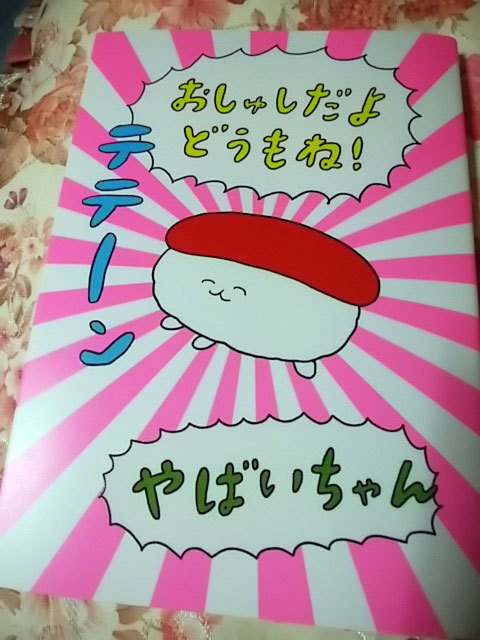 おしゅしだよ
どうもね!
テテーン
やばいちゃん